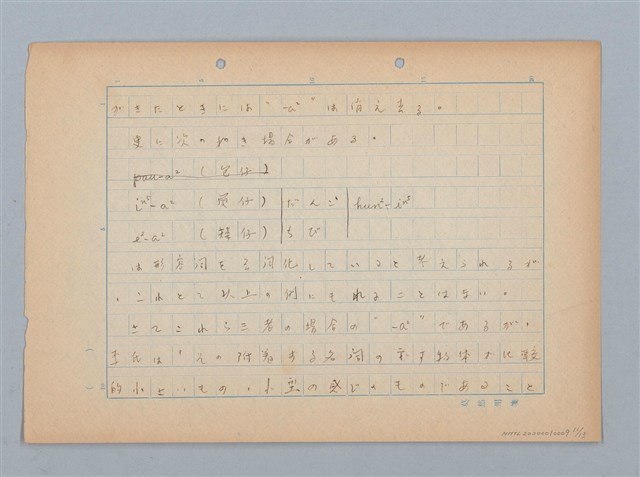 がきたときには"-á"は消え去る。
更に次の如き場合がある。
pau-a² (包仔)
in⁵-a² (圓仔) だんご hun²-in⁵
e²-a² (矮仔) ちび
は形容詞を名詞化していると考えられるが
、これとて以上の例にもれることはない。
さてこれら三者の場合の"-a²"であるが、
李氏は「その附着する名詞の示す物体が比較
的小さいもの、小型の感じのものであること
NMTL20200010009